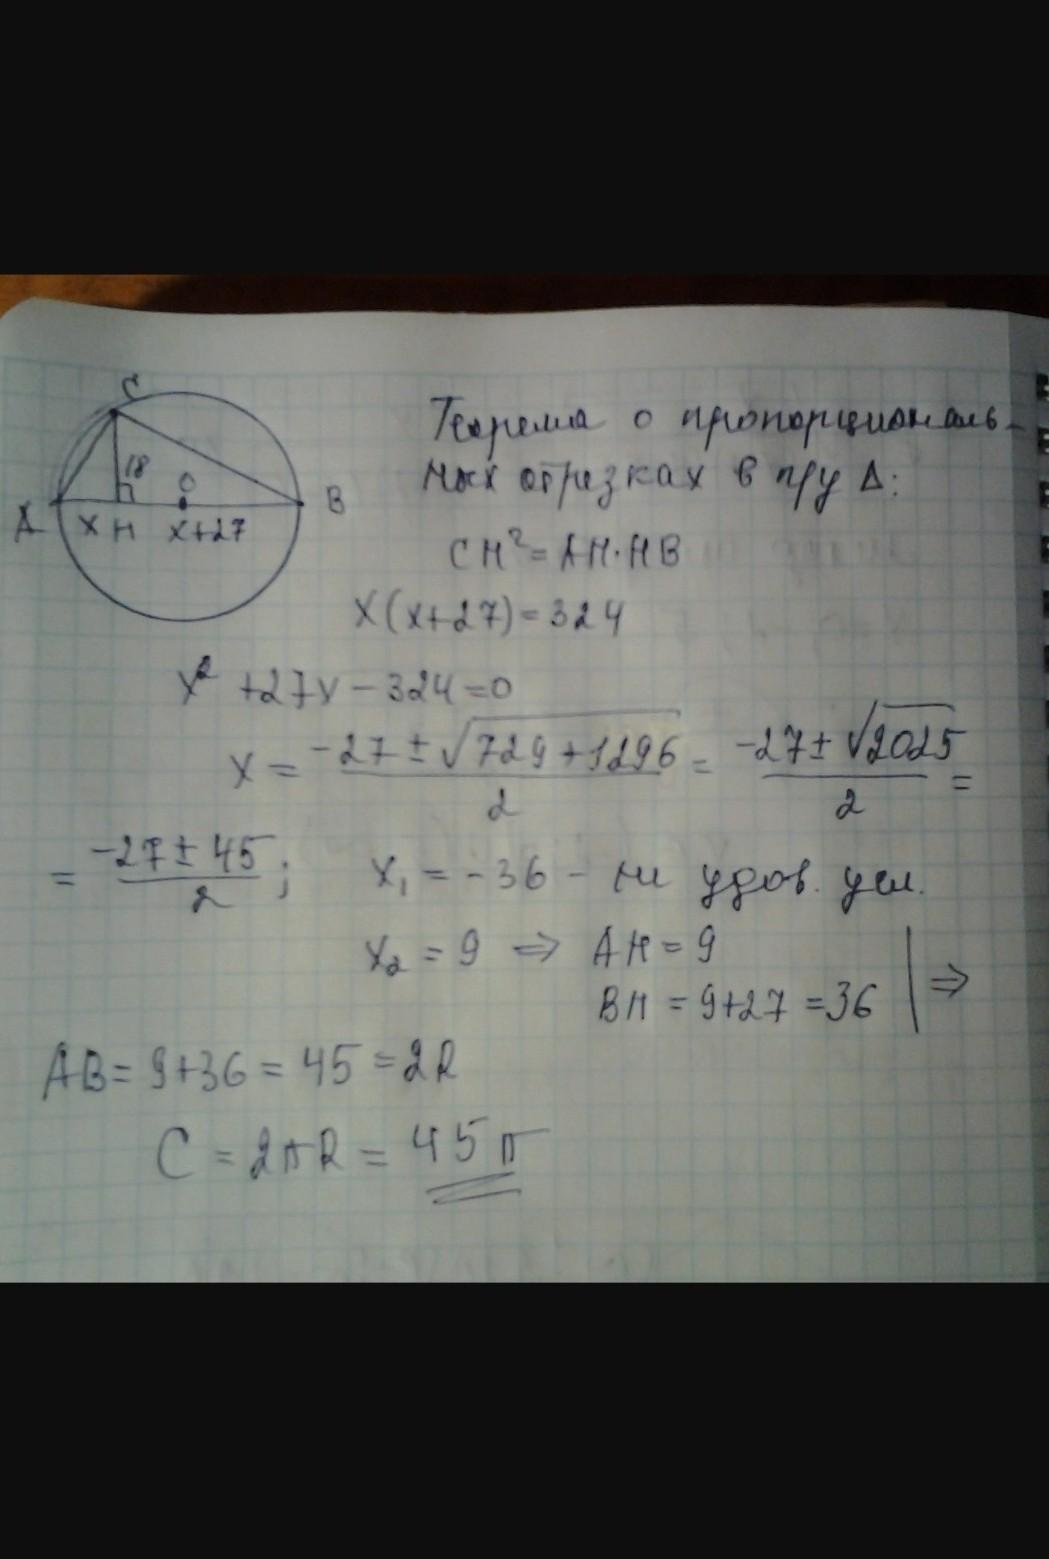 C
18
O
A
B
x H x+27
Теорема о пропорциональ-
ных отрезках в п/у Δ:
CH²=AH·HB
x(x+27)=324
x² +27x-324=0
x = (-27 ± √(729+1296))/2 = (-27± √2025)/2 =
= (-27 ± 45)/2 ; x₁ = -36 - не удов. усл.
x₂ = 9 ⇒ AH = 9
BH = 9+27 =36 | ⇒
AB = 9+36 = 45 = 2R
C = 2πR = 45π